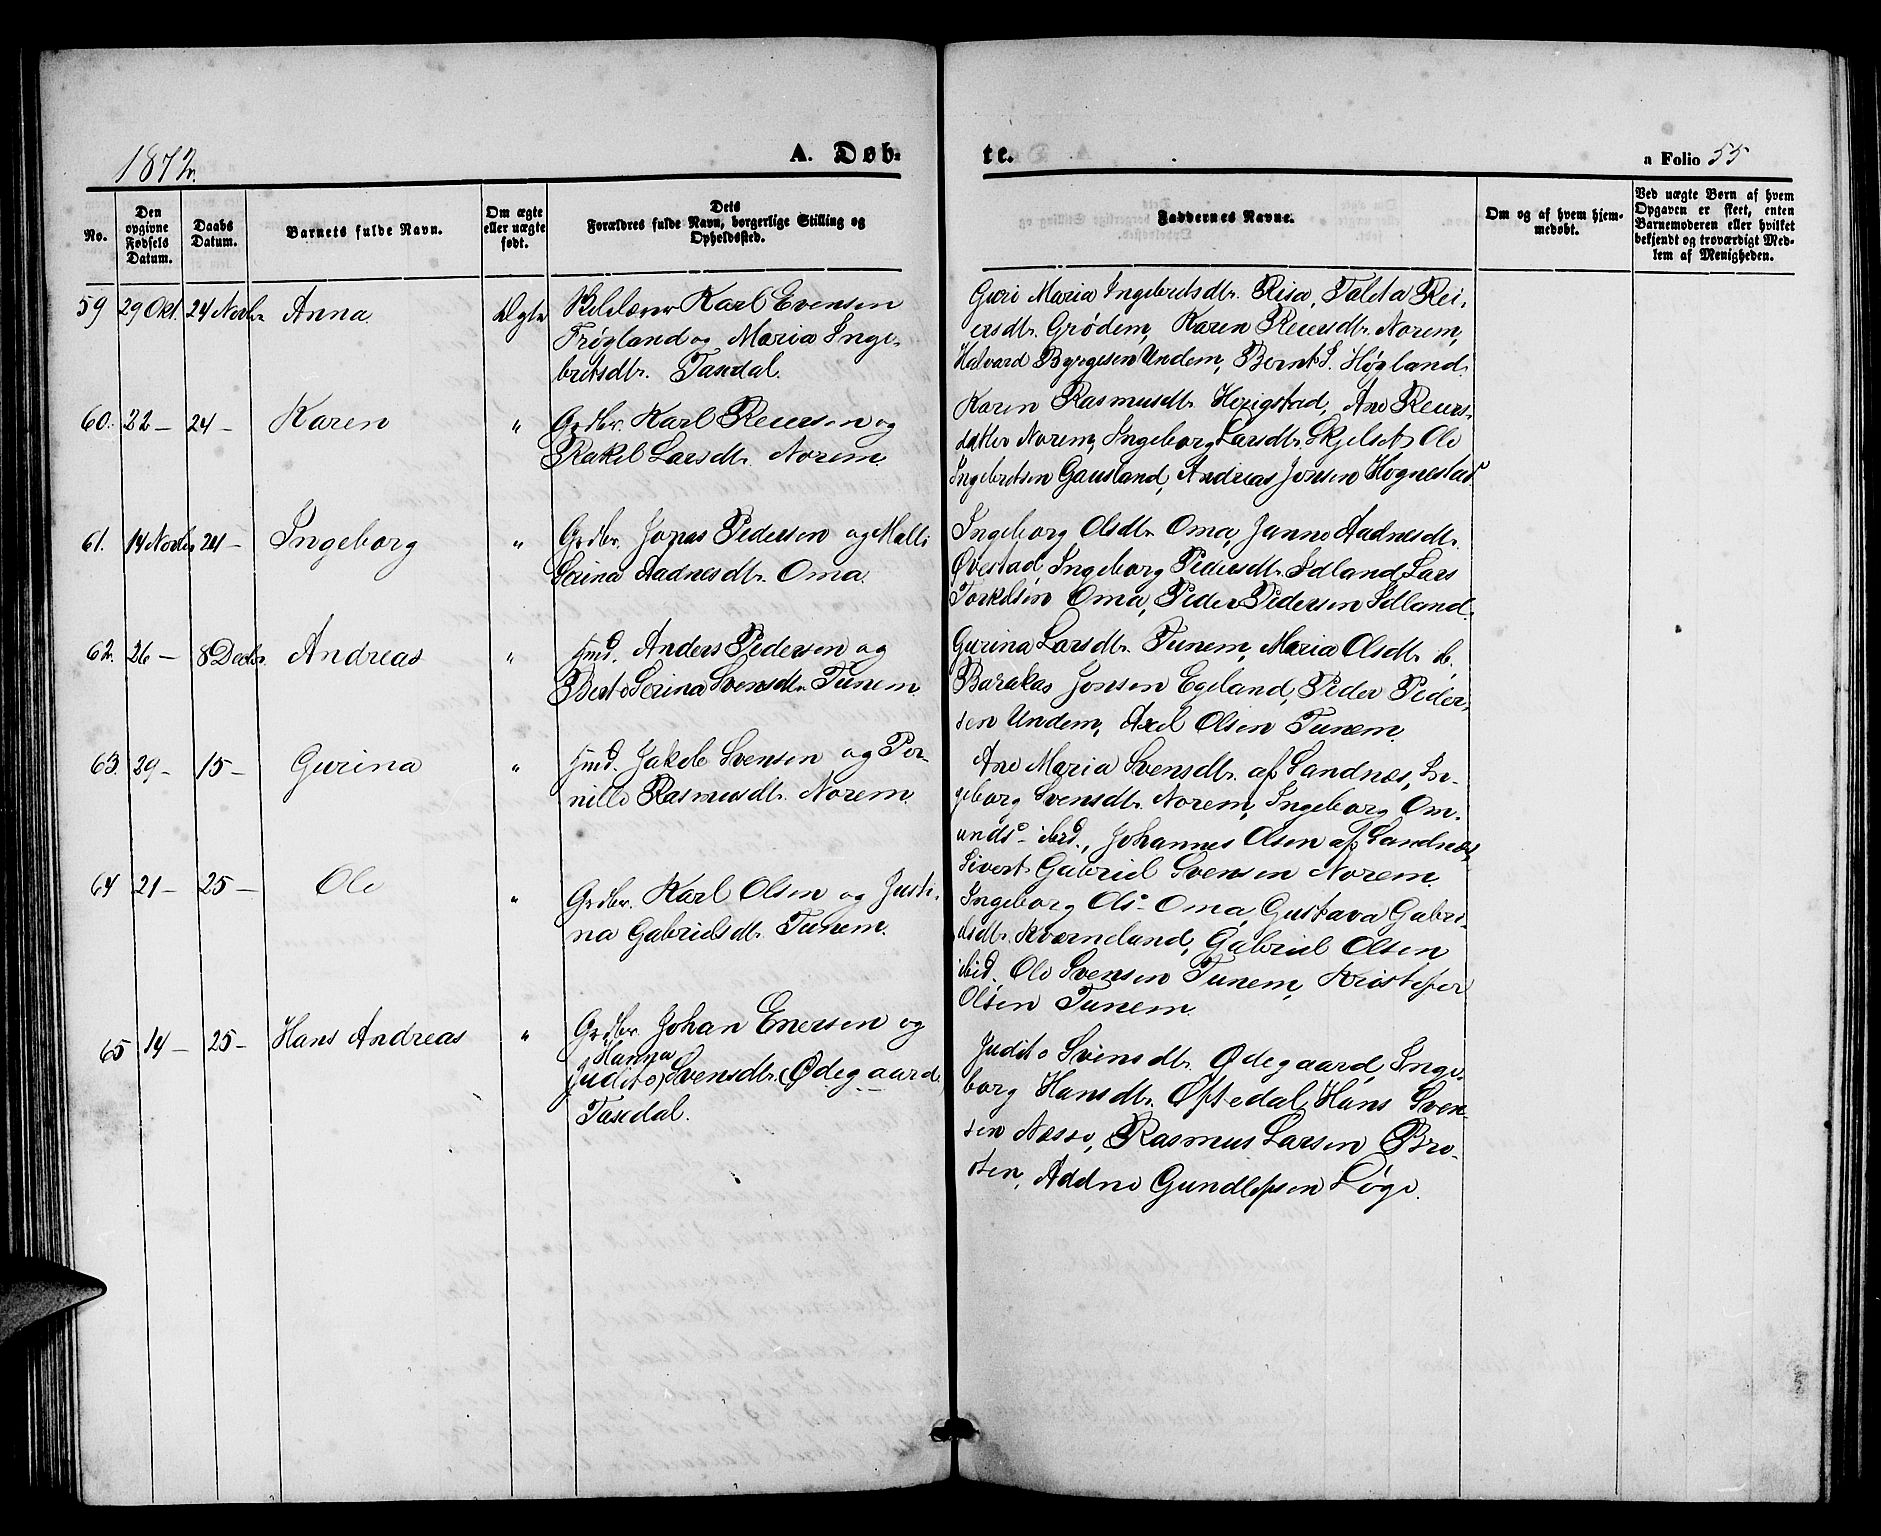 1872.
A. Døb-
te.
a Folio 55
No.
Den
opgivne
Fødsels
Datum.
Daabs
Datum.
Barnets fulde Navn.
Om ægte
eller uægte
født.
Dets
Forældres fulde Navn, borgerlige Stilling og
Opholdssted.
Faddernes Navne.
Om og af hvem hjem-
medøbt.
Ved uægte Børn af hvem
Opgaven er skeet, enten
Barnemoderen eller hvilket
bekjendt og troværdigt Med-
lem af Menigheden.
59 29 Okt. 24 Novbr Anna Ægte Skolelærer Karl Evensen
Frøyland og Maria Inge-
britsdtr. Taxdal.
Guri Maria Ingebritsdtr. Risa, Taleta Rei-
ersdtr. Grødem, Karen Reiersdtr. Norem,
Halvard Byrgesen Undem, Bernt S. Høyland.
60. 22 – 24 – Karen " Grdbr. Karl Reiersen og
Rakel Larsdtr. Norem.
Karen Rasmusdtr. Herigstad, Ane Reiers-
datter Norem, Ingeborg Larsdtr. Skjelset, Ole
Ingebretsen Gausland, Andreas Jonsen Hognestad
61. 14 Novbr 24 – Ingeborg " Grdbr. Jonas Pedersen og Malli
Serina Aadnesdtr. Oma.
Ingeborg Olsdtr. Oma, Janne Aadnesdtr.
Øvestad, Ingeborg Pedersdtr. Idland, Lars
Torkelsen Oma, Peder Pedersen Idland.
62. 26 – 8 Decbr. Andreas " Hmd. Anders Pedersen og
Berte Serina Svensdtr. Tunem.
Gurina Larsdtr. Tunem, Maria Olsdtr. ib.
Barakas Jonsen Egeland, Peder Peder-
sen Undem, Axel Olsen Tunem.
63. 29 – 15 – Gurina " Hmd. Jakob Svensen og Per-
nille Rasmusdtr. Norem.
Ane Maria Svensdtr. af Sandnes, In-
geborg Svensdtr. Norem, Ingeborg Om-
undsd. ibid., Johannes Olsen af Sandnes,
Sivert Gabriel Svensen Norem.
64 21 – 25 – Ole " Grdbr. Karl Olsen og Justi-
na Gabrielsdtr. Tunem.
Ingeborg Olsd. Oma, Gustava Gabri-
elsdtr. Kverneland, Gabriel Olsen
ibid. Ole Svensen Tunem, Kristofer
Olsen Tunem.
65 14 – 25 – Hans Andreas " Grdbr. Johan Enersen og
Hanna
(Judite) Svensdtr. (Ødegaard)
Taxdal.
Judite Svensdtr. Ødegaard, Inge-
borg Hansdtr. Oftedal, Hans Sven-
sen Næsse, Rasmus Larsen Bro-
sten, Addne Gundlefsen Løge.